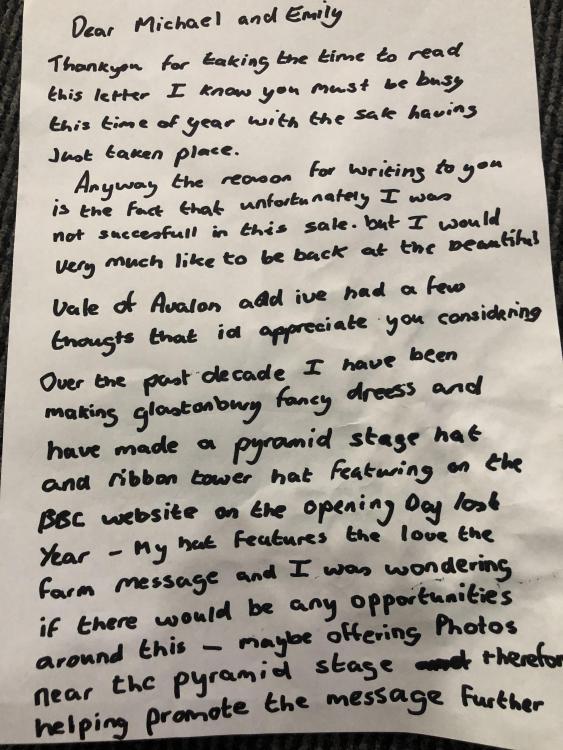 Dear Michael and Emily
Thankyou for taking the time to read
this letter I know you must be busy
this time of year with the sale having
Just taken place.
Anyway the reason for writing to you
is the fact that unfortunately I was
not succesfull in this sale. but I would
very much like to be back at the beautiful
Vale of Avalon add ive had a few
thougts that id appreciate you considering
Over the past decade I have been
making glastonbury fancy dreess and
have made a pyramid stage hat
and ribbon tower hat featuring on the
BBC website on the opening Day last
Year - My hat features the love the
farm message and I was wondering
if there would be any opportunities
around this - maybe offering Photos
near the pyramid stage and therefor
helping promote the message further